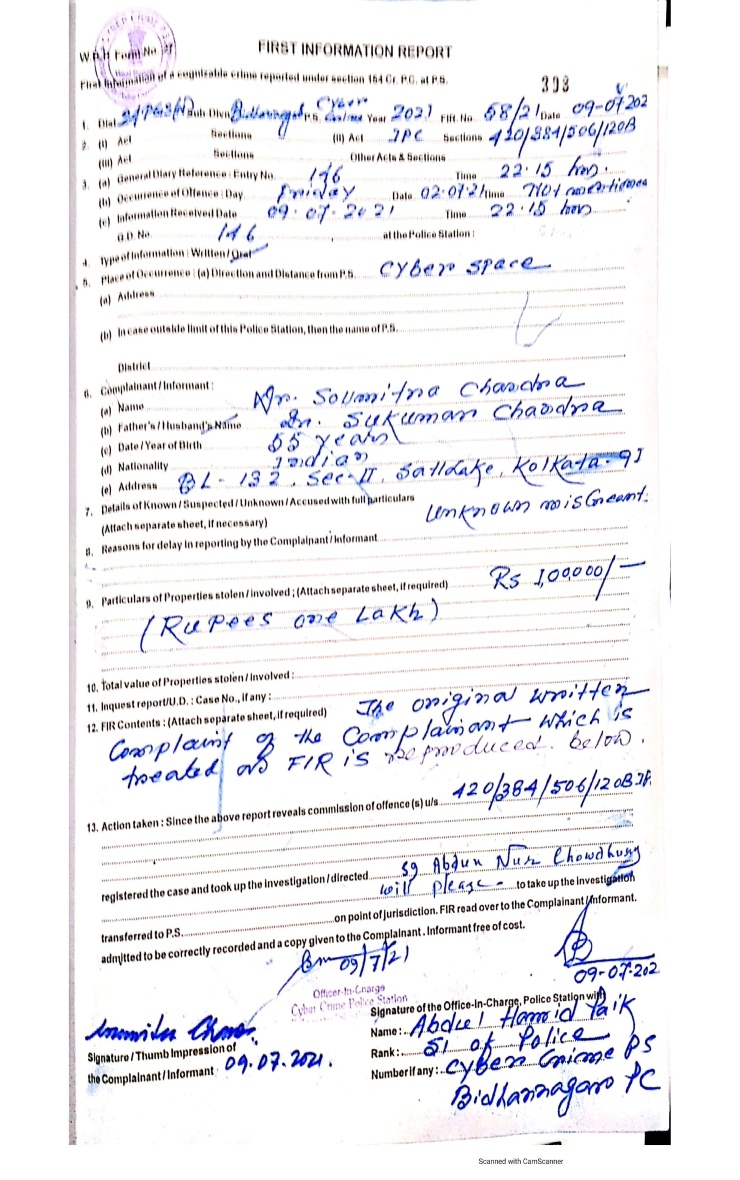 W.B.P. Form No. 27
FIRST INFORMATION REPORT
First Information of a cognisable crime reported under section 154 Cr. P.C. at P.S.
1. Dist. 24 PGS(N) Sub Divn. Bidhannagar P.S. Cyber Crime Year 2021 FIR No. 68/21 Date 09-07-202
2. (i) Act Sections (ii) Act IPC Sections 420/384/506/120B
(iii) Act Sections Other Acts & Sections
3. (a) General Diary Reference : Entry No. 146 Time 22.15 hrs.
(b) Occurrence of Offence : Day Friday Date 02.07.21 time Not mentioned
(c) Information Received Date 09.07.2021 Time 22.15 hrs
G.D. No. 146 at the Police Station :
4. Type of Information : Written / Oral
5. Place of Occurrence : (a) Direction and Distance from P.S. Cyber space
(a) Address
(b) In case outside limit of this Police Station, then the name of P.S.
District
6. Complainant / Informant :
(a) Name Mr. Soumitra Chandra
(b) Father's / Husband's Name Lt. Sukumar Chandra
(c) Date / Year of Birth 55 years
(d) Nationality Indian
(e) Address BL-132, Sec-II, Saltlake, Kolkata-91
7. Details of Known / Suspected / Unknown / Accused with full particulars
(Attach separate sheet, if necessary) Unknown miscreant.
8. Reasons for delay in reporting by the Complainant / Informant
9. Particulars of Properties stolen / involved ; (Attach separate sheet, if required) Rs 1,00,000/-
(Rupees one Lakh)
10. Total value of Properties stolen / involved :
11. Inquest report/U.D. : Case No., if any :
12. FIR Contents : (Attach separate sheet, if required) The original written
Complaint of the Complainant which is
treated as FIR is reproduced below.
13. Action taken : Since the above report reveals commission of offence (s) u/s 420/384/506/120B IPC
registered the case and took up the investigation / directed SI Abdun Nur Chowdhury
will please - to take up the Investigation
transferred to P.S. on point of jurisdiction. FIR read over to the Complainant / Informant.
admitted to be correctly recorded and a copy given to the Complainant. Informant free of cost.
09/7/21
09-07-202
Officer-In-Charge
Cyber Crime Police Station
Signature of the Office-In-Charge, Police Station with
Name : Abdul Hamid Paik
Signature / Thumb Impression of
Rank : SI of Police
the Complainant / Informant 09.07.2021.
Number if any : Cyber Crime PS
Bidhannagar PC
Scanned with CamScanner